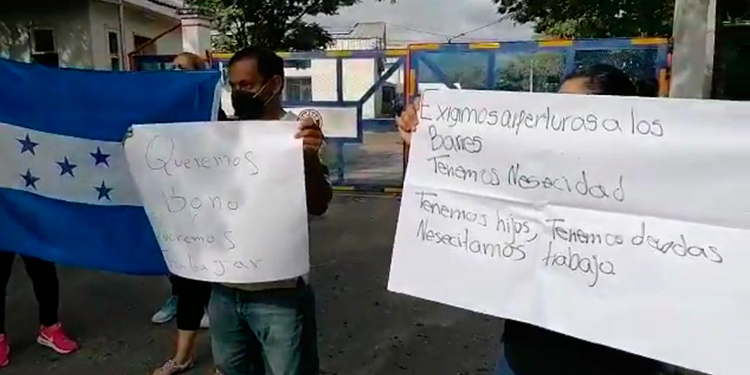 Queremos
bono
y
Queremos
trabajar
Exigimos aperturas a los
Bares
Tenemos Nesecidad
Tenemos hijos, Tenemos deudas
Nesecitamos trabajo